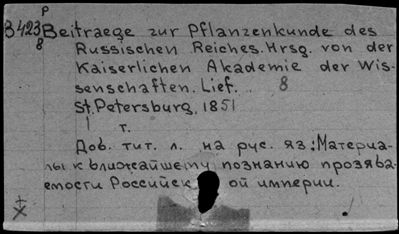 P
B 423
8
Beitraege zur Pflanzenkunde des
Russischen Reiches. Hrsg. von der
Kaiserlichen Akademie der Wis-
senschaften. Lief. 8
St. Petersburg, 1851
1 т.
Доб. тит. л. на рус. яз.: Материа-
лы к ближайшему познанию прозяба-
емости Российск ой империи.